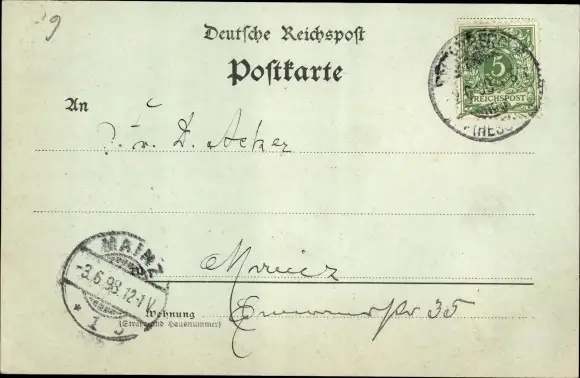 9
Deutsche Reichspost
Postkarte
5
REICHSPOST
(HESS
An
v. D. Acker
MAINZ
-3.6.98.12-1V.
* 1
Mainz
Wohnung
(Straße und Hausnummer)
35